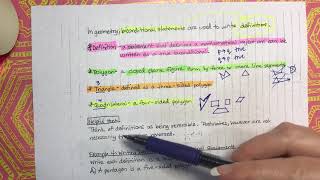 In geometry, biconditional statements are used to write definitions.
Definition - a statement that
can be
written as a true biconditional.
p→q true
q→p true
Polygon - closed plane figure formed by three or more line segments
Triangle - defined as a three-sided polygon
Quadrilateral - a four-sided polygon
Helpful Hint:
Think of definitions as being reversible. Postulates, however are not
necessarily true when reversed.
Write each definition as a
A) A pentagon is a five-sided polygon